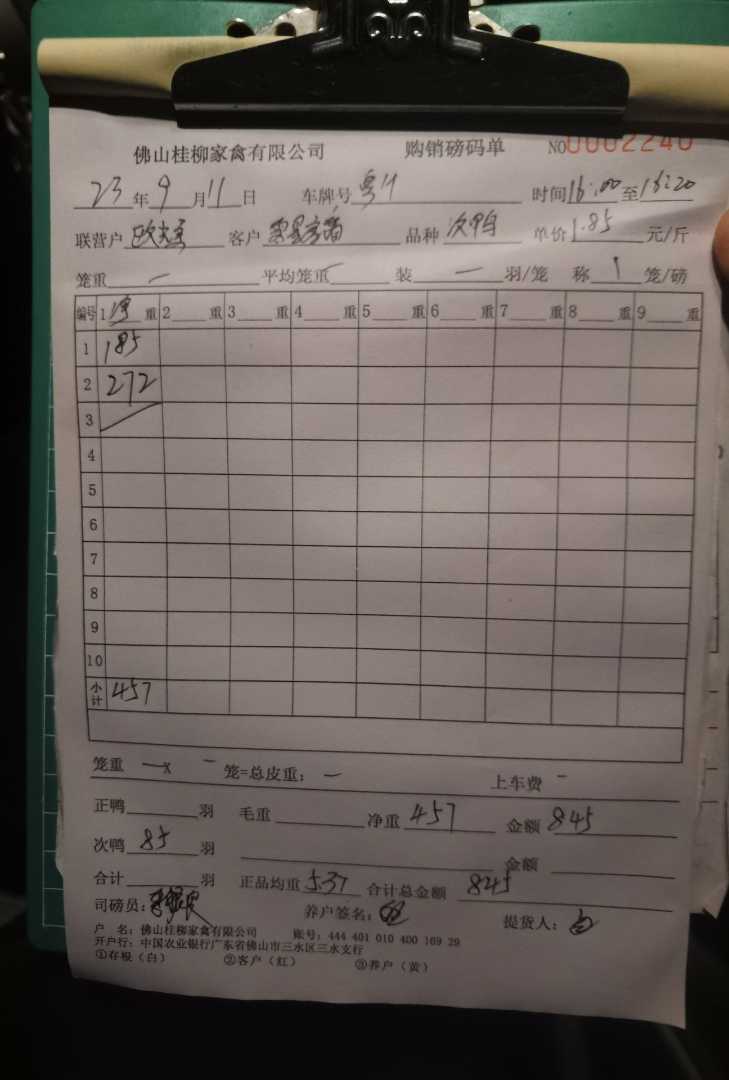 佛山桂柳家禽有限公司 购销磅码单 NO0002240
23年9月11日 车牌号 粤 时间16:00至16:20
联营户 客户 品种 次鸭 单价1.85元/斤
笼重 — 平均笼重 — 装 — 羽/笼 称 1 笼/磅
编号 1净重 2 重 3 重 4 重 5 重 6 重 7 重 8 重 9 重
1 185
2 272
3
4
5
6
7
8
9
10
小计 457
笼重 —x — 笼=总皮重: — 上车费 —
正鸭 羽 毛重 净重 457 金额 845
次鸭 85 羽 金额
合计 羽 正品均重 5.37 合计总金额 845
司磅员: 养户签名: 提货人:
户 名: 佛山桂柳家禽有限公司 账号: 444 401 010 400 169 29
开户行: 中国农业银行广东省佛山市三水区三水支行
①存根（白） ②客户（红） ③养户（黄）